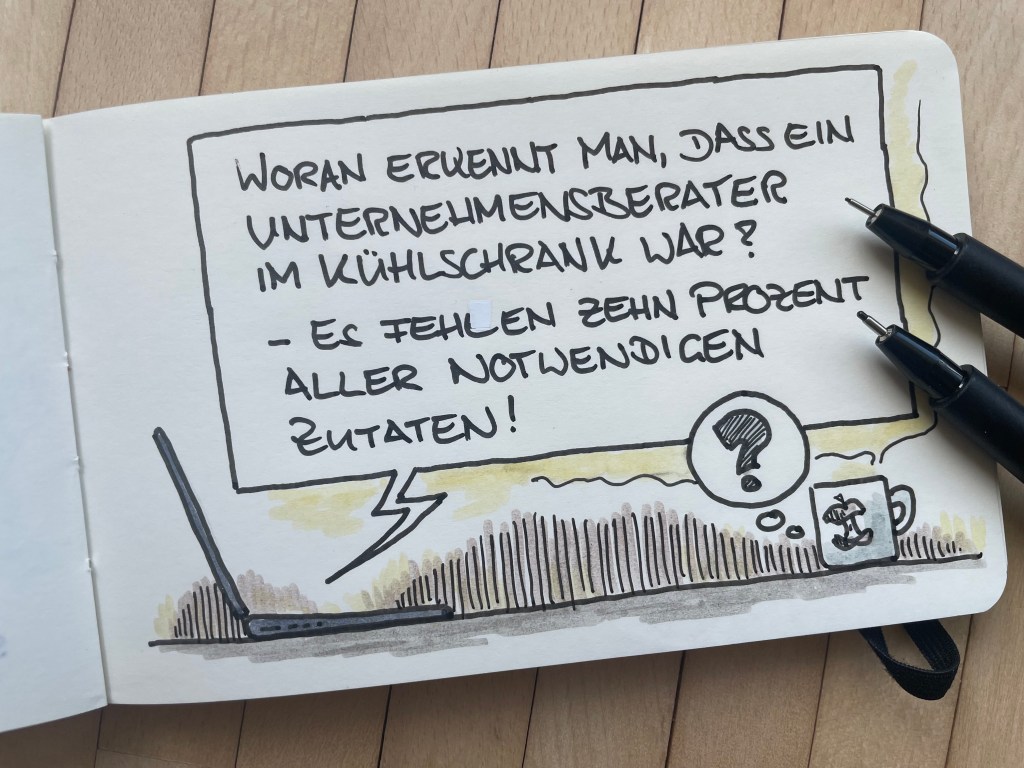 WORAN ERKENNT MAN, DASS EIN
UNTERNEHMENSBERATER
IM KÜHLSCHRANK WAR?
- ES FEHLEN ZEHN PROZENT
ALLER NOTWENDIGEN
ZUTATEN!
?